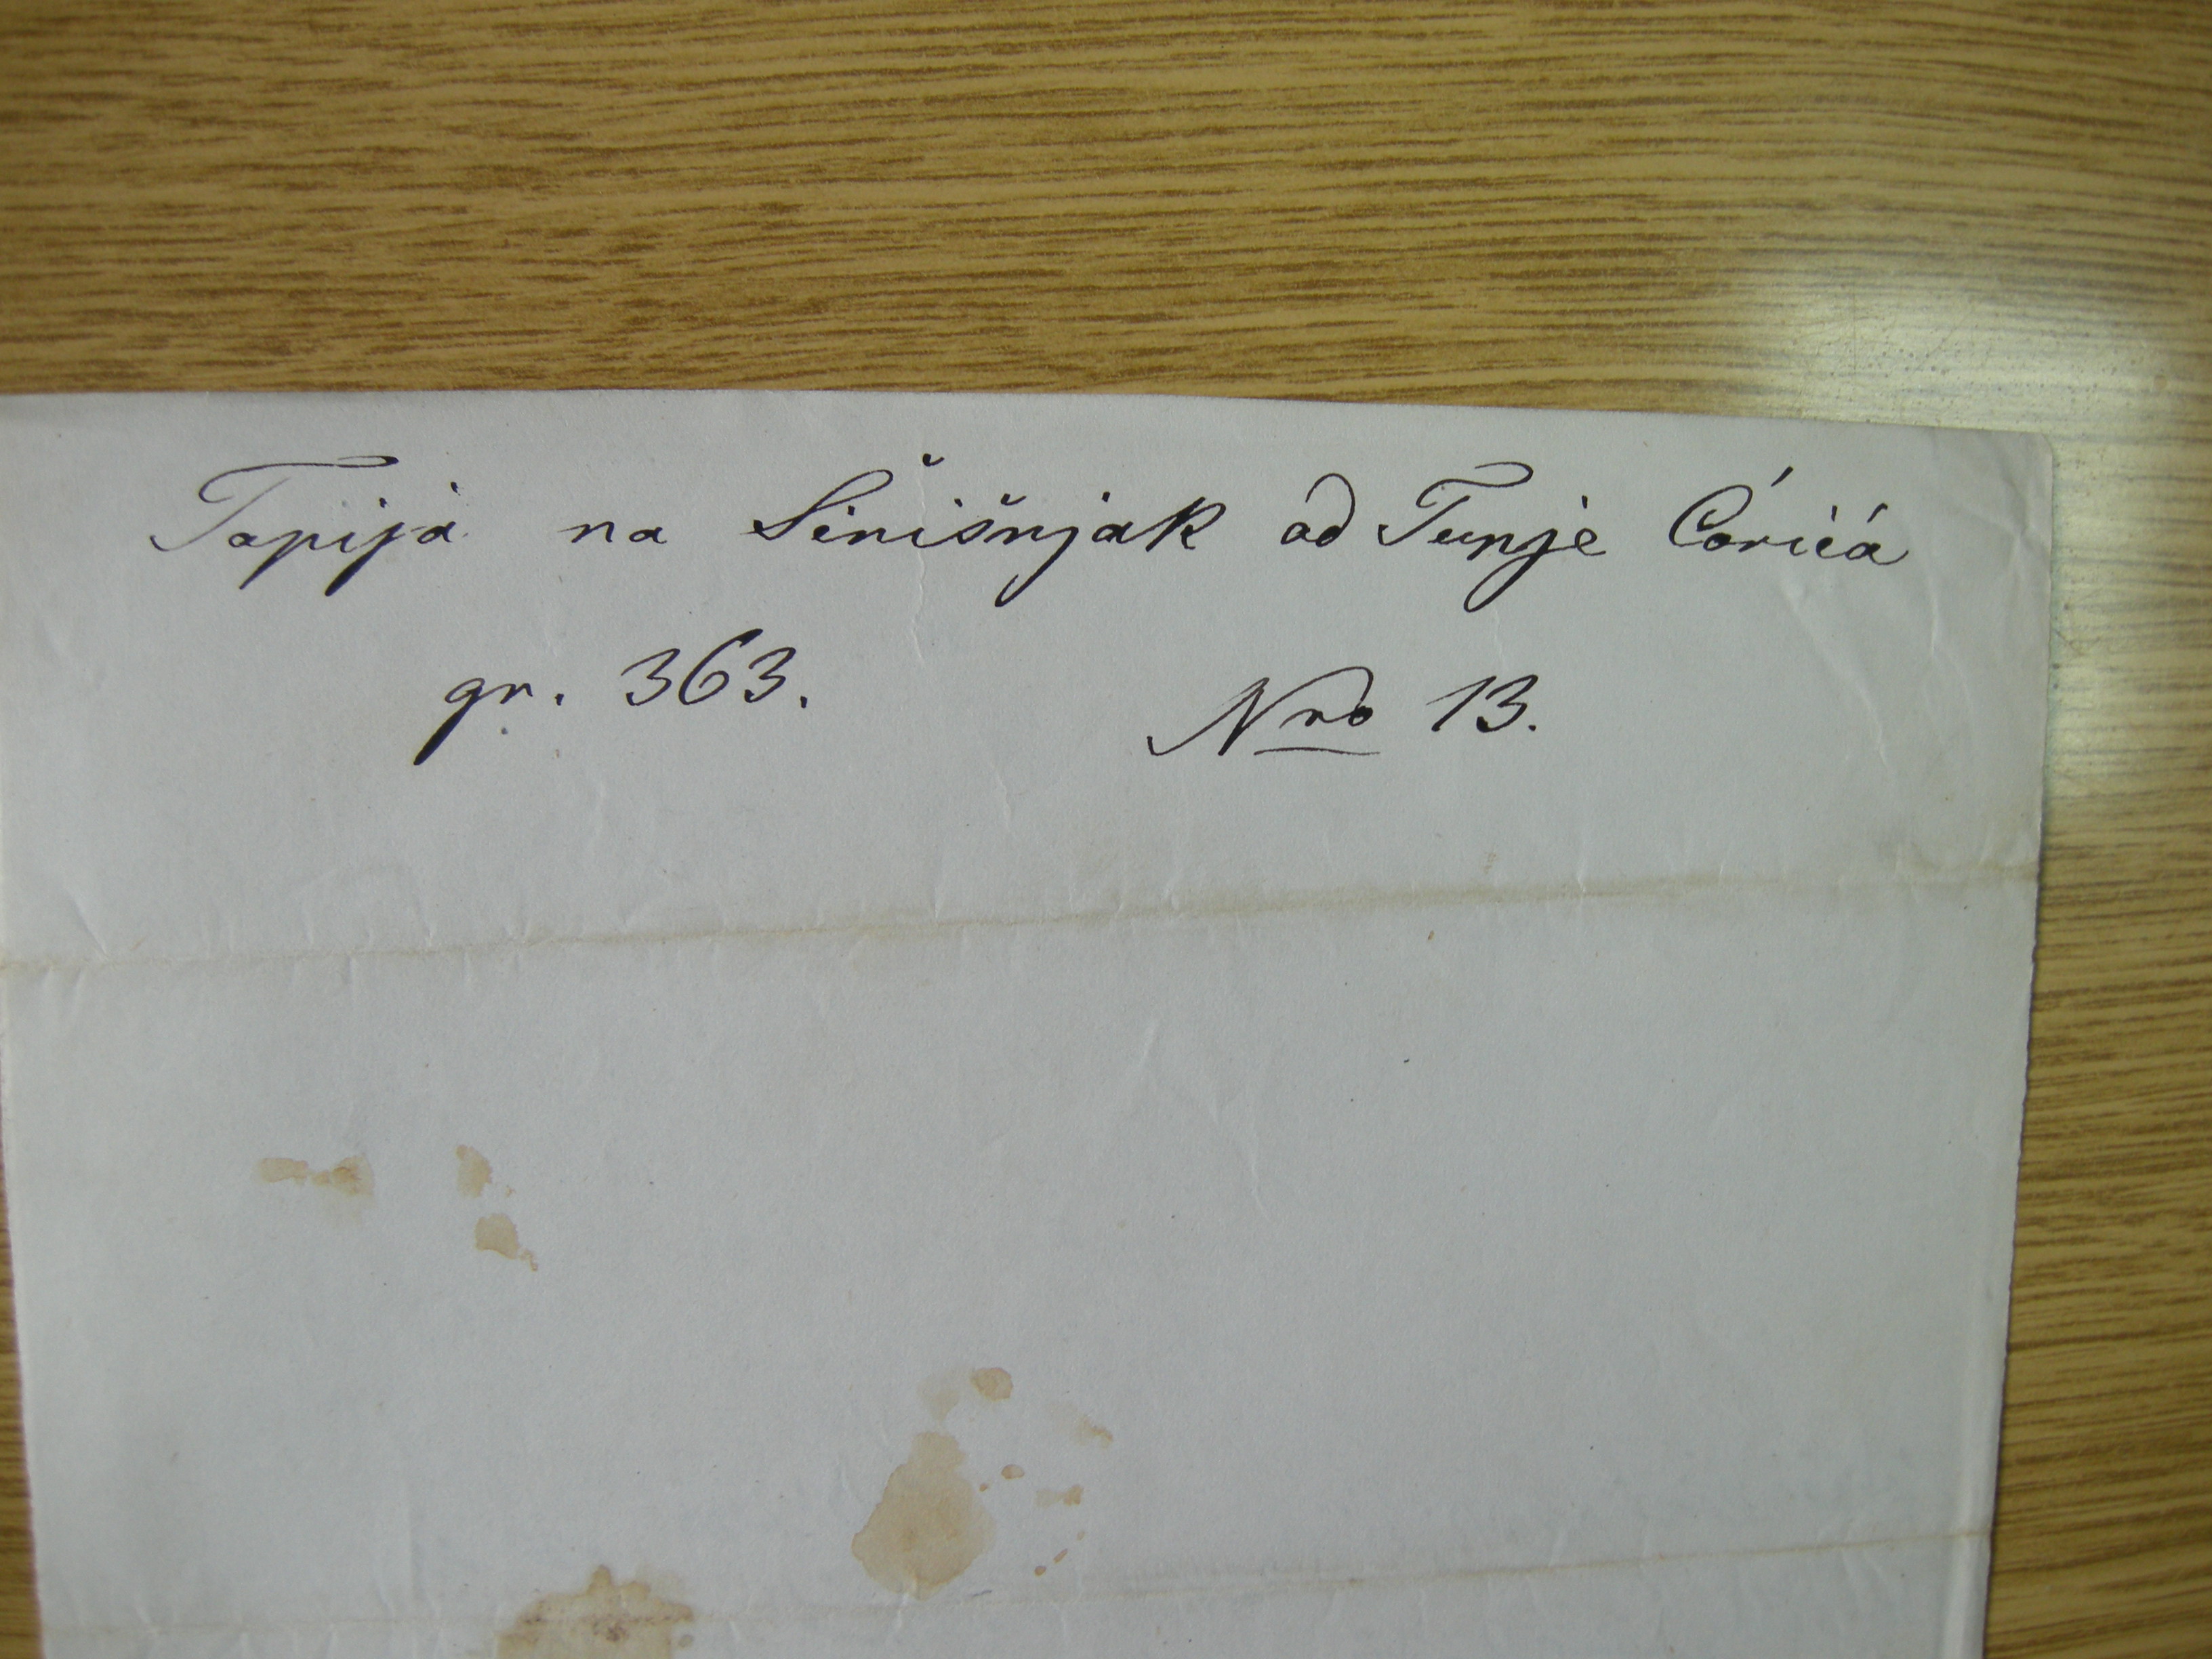 Tapija na Širišnjak od Tunje Ćorića
gr. 363. Nro 13.